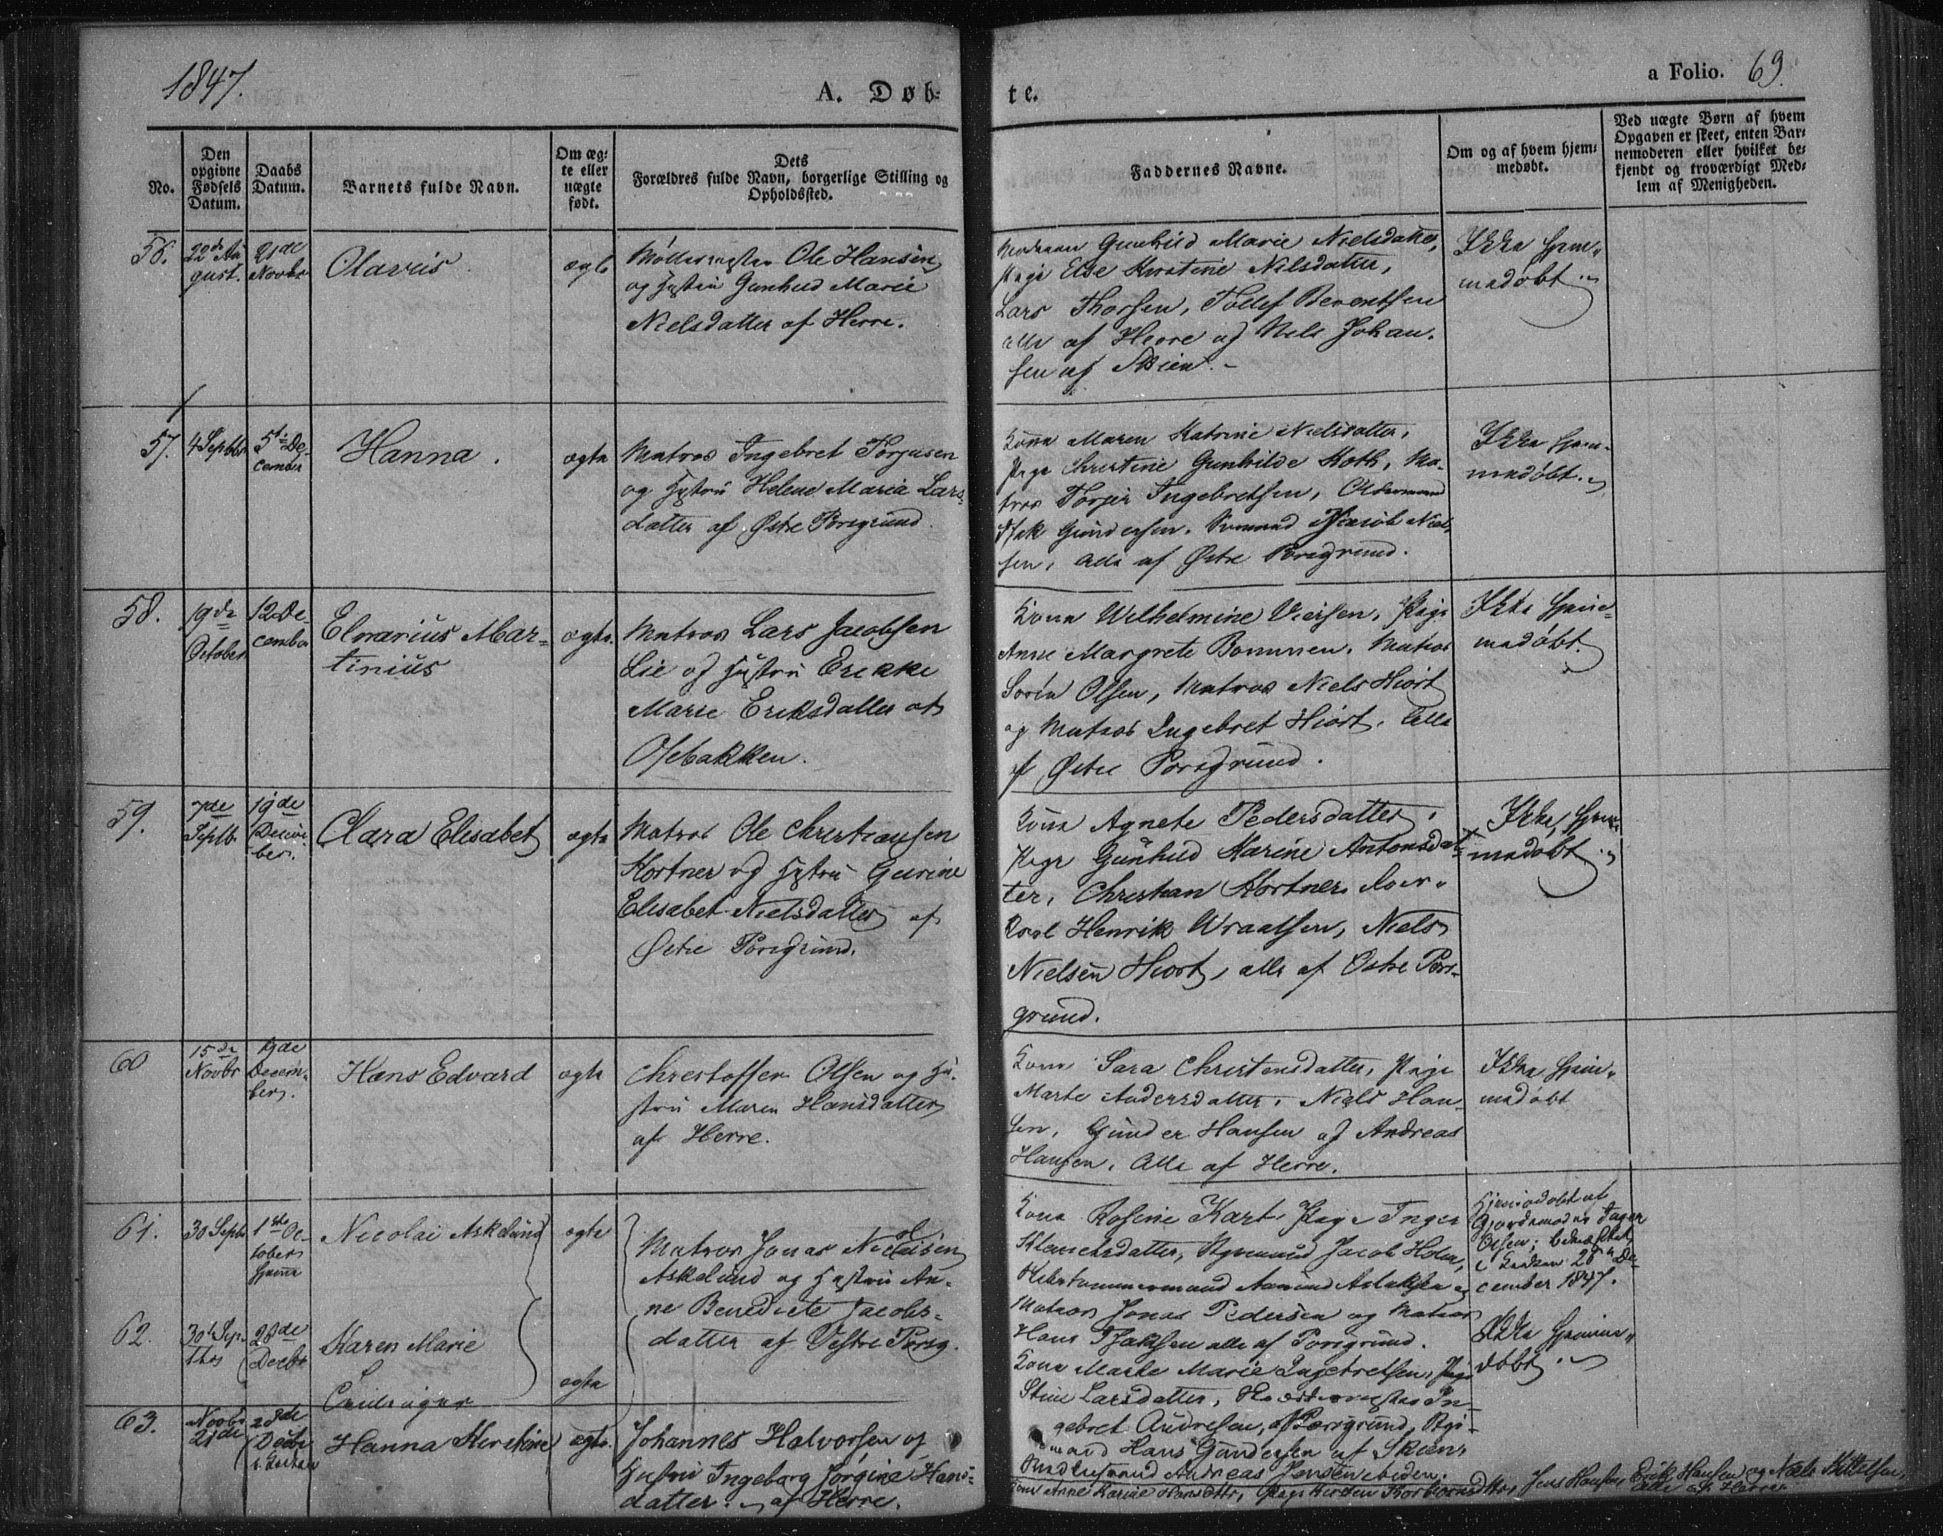 1847.
A. Døb-
te.
a Folio. 69.
No.
Den
opgivne
Fødsels
Datum.
Daabs
Datum.
Barnets fulde Navn.
Om æg-
te eller
uægte
født.
Dets
Forældres fulde Navn, borgerlige Stilling og
Opholdssted.
Faddernes Navne.
Om og af hvem hjem-
medøbt.
Ved uægte Børn af hvem
Opgaven er skeet, enten Bar-
nemoderen eller hvilket be-
kjendt og troværdigt Med-
lem af Menigheden.
56.
22de Au
gust.
21de
Novbr
Olavus
ægte
Møllermester Ole Hansen
og Hustru Gunhild Marie
Nielsdatter af Herre.
Gunhild Marie Nielsdatter,
Pige Else Kirstine Nilsdatter,
Lars Thorsen, Tollef Berentsen
alle af Herre og Nels Johan-
sen af Skien.
Ikke Hjem-
medøbt
57.
4 Septbr
5te De-
cember
Hanna.
ægte
Matros Ingebret Torjusen
og Hustru Helene Maria Lars-
datter af Østre Porsgrund.
Kone Maren Katrine Nielsdatter,
Pige Christine Gunhilde Hoth, Ma-
tros Torjer Ingebretsen, Oldermand
Isak Gundersen, Jacob Niel-
sen, Alle af Østre Porsgrund.
Ikke Hjem-
medøbt
58.
19de
October
12 De-
cember
Elvarius Mar-
tinius
ægte.
Matros Lars Jacobsen
Lie og Hustru Erikke
Marie Eriksdatter af
Osebakken.
Kone Wilhelmine Viersen, Pige
Anne Margrete Bommen, Matros
Søren Olsen, Matros Niels Hiort
og Matros Ingebret Hiort, Alle
af Østre Porsgrund.
Ikke Hjem-
medøbt.
59.
7de
Septb.
19de
Decem-
ber.
Clara Elisabet
ægte
Matros Ole Christiansen
Kortner og Hustru Gurine
Elisabet Nielsdatter af
Østre Porsgrund.
Kone Agnete Pedersdatter,
Pige Gunhild Marine Antonsdat-
ter, Christian Kortner,
Henrik Wraalsen, Niels
Nielsen Hiort, alle af Østre Pors-
grund.
Ikke Hjem-
medøbt
60
15de
Novbr
19de
Decem-
ber.
Hans Edvard
ægte
Christoffer Olsen og Hu-
stru Maren Hansdatter
af Herre.
Kone Sara Christensdatter, Pige
Marte Andersdatter, Niels Han-
sen, Gunder Hansen og Andreas
Hansen, Alle af Herre.
Ikke Hjem-
medøbt
61.
30 Septb
1ste Oc-
tober
Hjeme
Nicolai Askelund
ægte
Matros Jonas Nicolaisen
Askelund og Hustru An-
ne Benedicte Jacobs-
datter af Vestre Porsg.
Kone Rosine Kart, Pige Inger
Jacob Holm,
Aslaksen
Matros Jonas Pedersen og Matros
Hans Isaksen alle af Porsgrund.
Hjemmedøbt af
Gjordemoder Inger
Olsen; bekræftet
i Kirken 28de De-
cember 1847.
62.
30te Sep-
tbr
28de
Decbr
Karen Marie
Tvillinger
ægte
Kone Marte Marie Ingebretsen, Pige
Stine Larsdatter, In-
gebret Andresen, af Porsgrund,
mand Hans Gundersen af Skien,
Andreas Jensen ibiden.
Ikke Hjemme-
døbt.
63.
Novbr
21de
28de
Decbr
i Kirken
Hanna Kirstine
ægte.
Johannes Halvorsen og
Hustru Ingeborg Jørgine Hans-
datter af Herre.
Kone Anne Karine Hansdatter, Pige Kirsten Thorbjørnsdtter, Jens Hansen, Erik Hansen og Niels Kittelsen,
Alle af Herre.